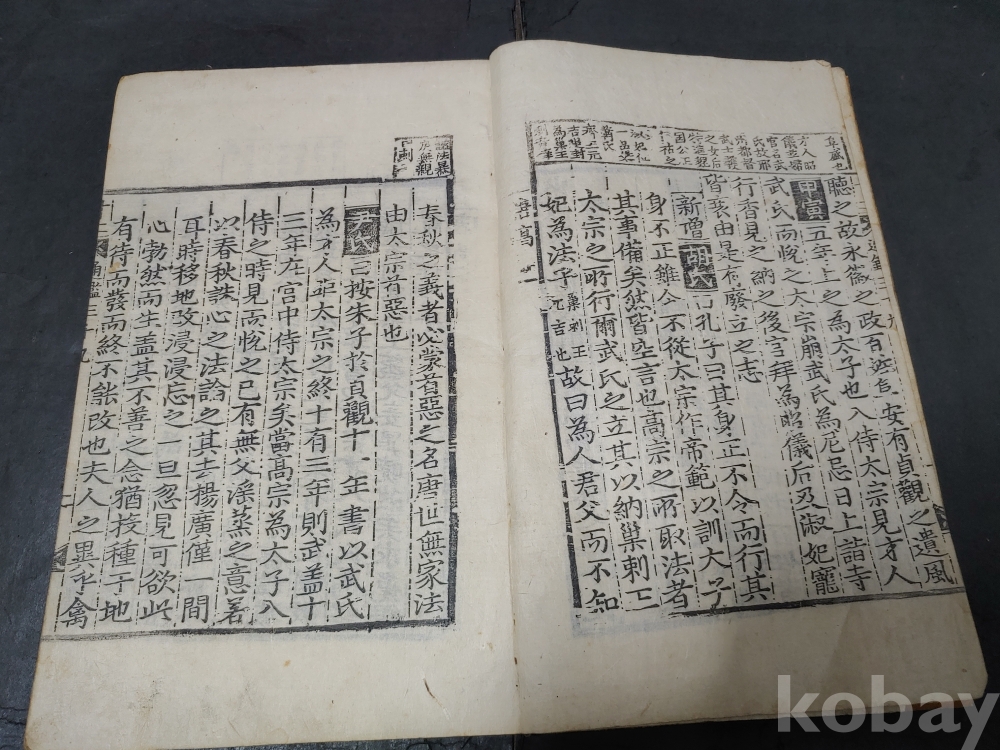 聽之故永徽之政有
安有貞觀之遺風
甲寅
五年上之為太子也入侍太宗見才人
武氏而悅之太宗崩武氏為尼忌日上詣寺
行香見之納之後宮拜為昭儀后及淑妃寵
皆衰由是有廢立之志
新增
胡氏
曰孔子曰其身正不令而行其
身不正雖令不從太宗作帝範以訓太子
其事備矣然皆空言也高宗之所取法者
太宗之所行爾武氏之立其以納巢剌王
妃為法乎
巢剌王
元吉也
故曰為人君父而不知
唐高
春秋之義者必蒙首惡之名唐世無家法
由太宗首惡也
尹氏
曰按朱子於貞觀十一年書以武氏
為才人距太宗之終十有三年則武盖十
三年在宮中侍太宗矣當高宗為太子入
侍之時見而悅之已有無父淫蒸之意若
以春秋誅心之法論之其去楊廣僅一間
耳時移地改浸浸忘之一旦忽見可欲此
心勃然而生盖其不善之念猶投種于地
有待而發而終不能改也夫人之異乎禽
kobay